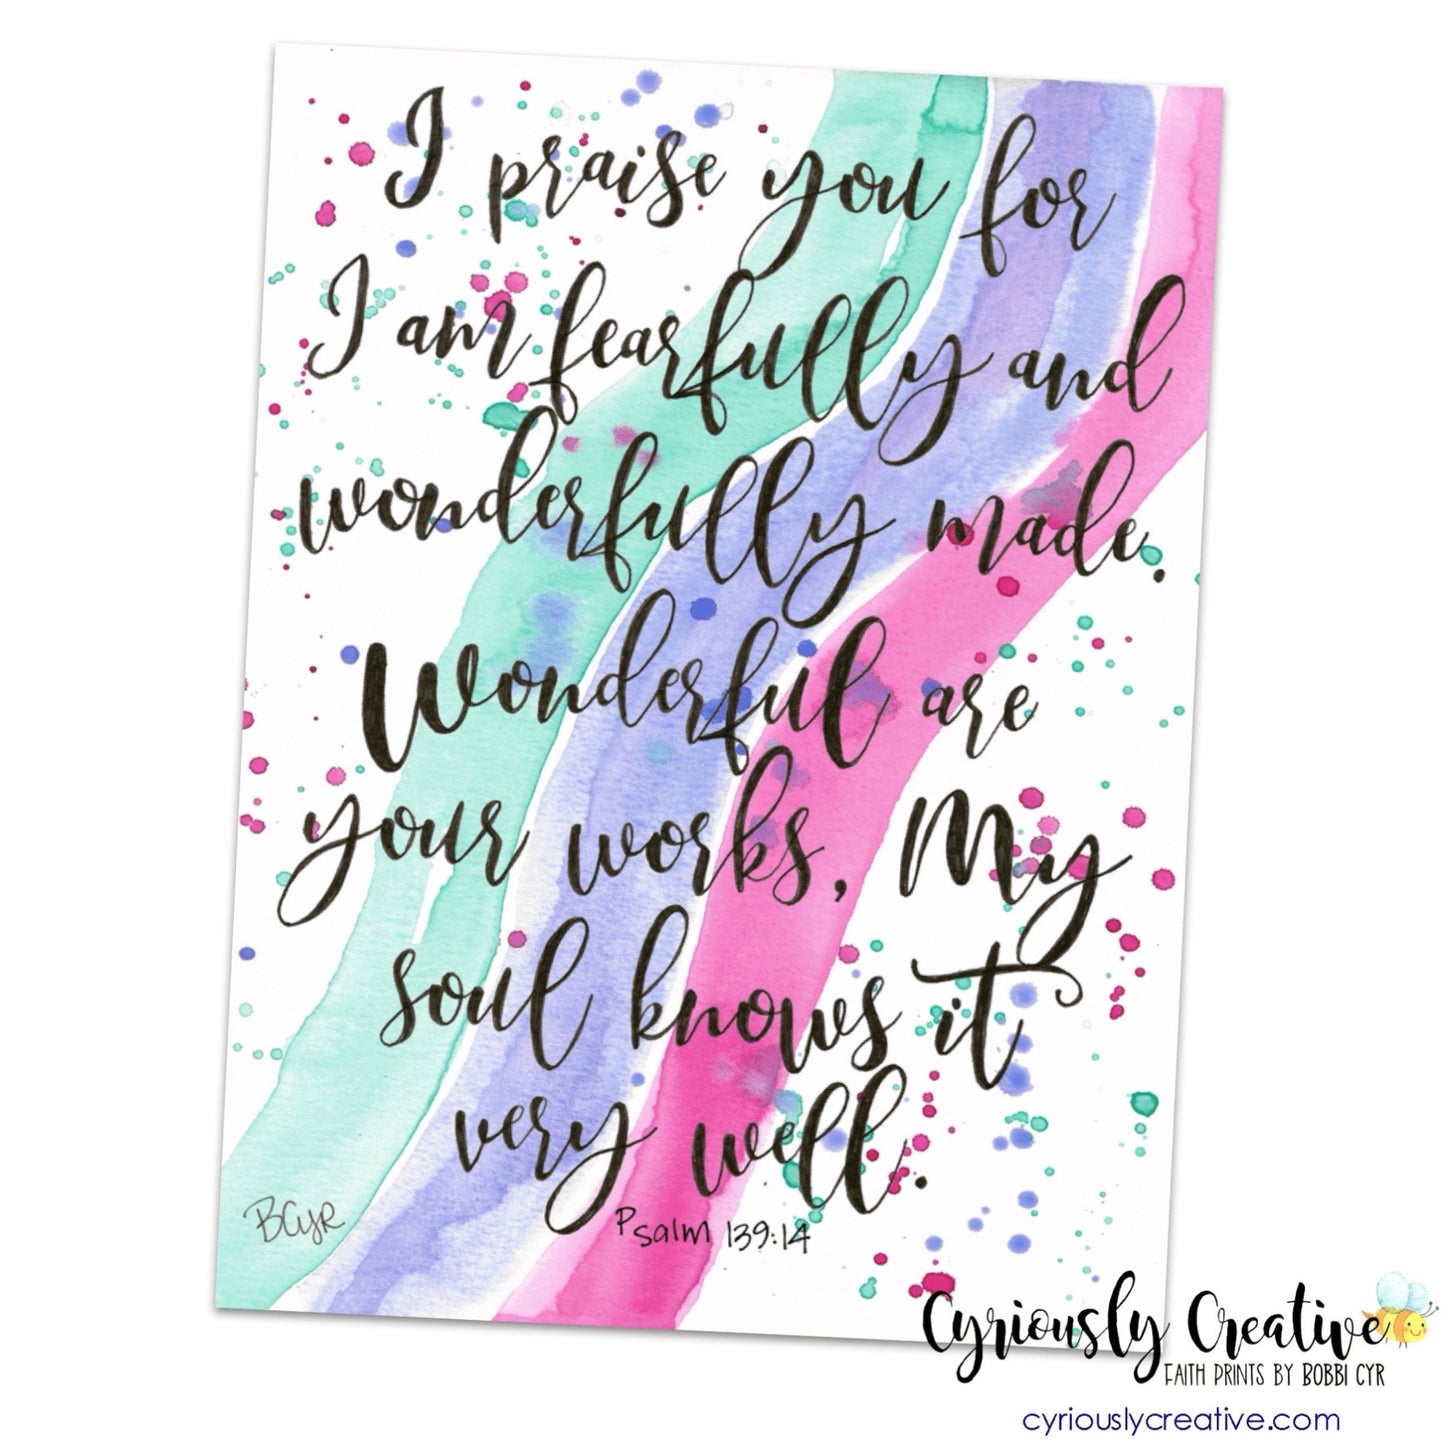 I praise you for
I am fearfully and
wonderfully made.
Wonderful are
your works, My
soul knows it
very well.
Psalm 139:14
BCyr
Cyriously Creative
FAITH PRINTS BY BOBBI CYR
cyriouslycreative.com